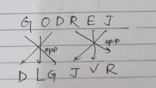 G O D R E J
opp opp
D L G J V R